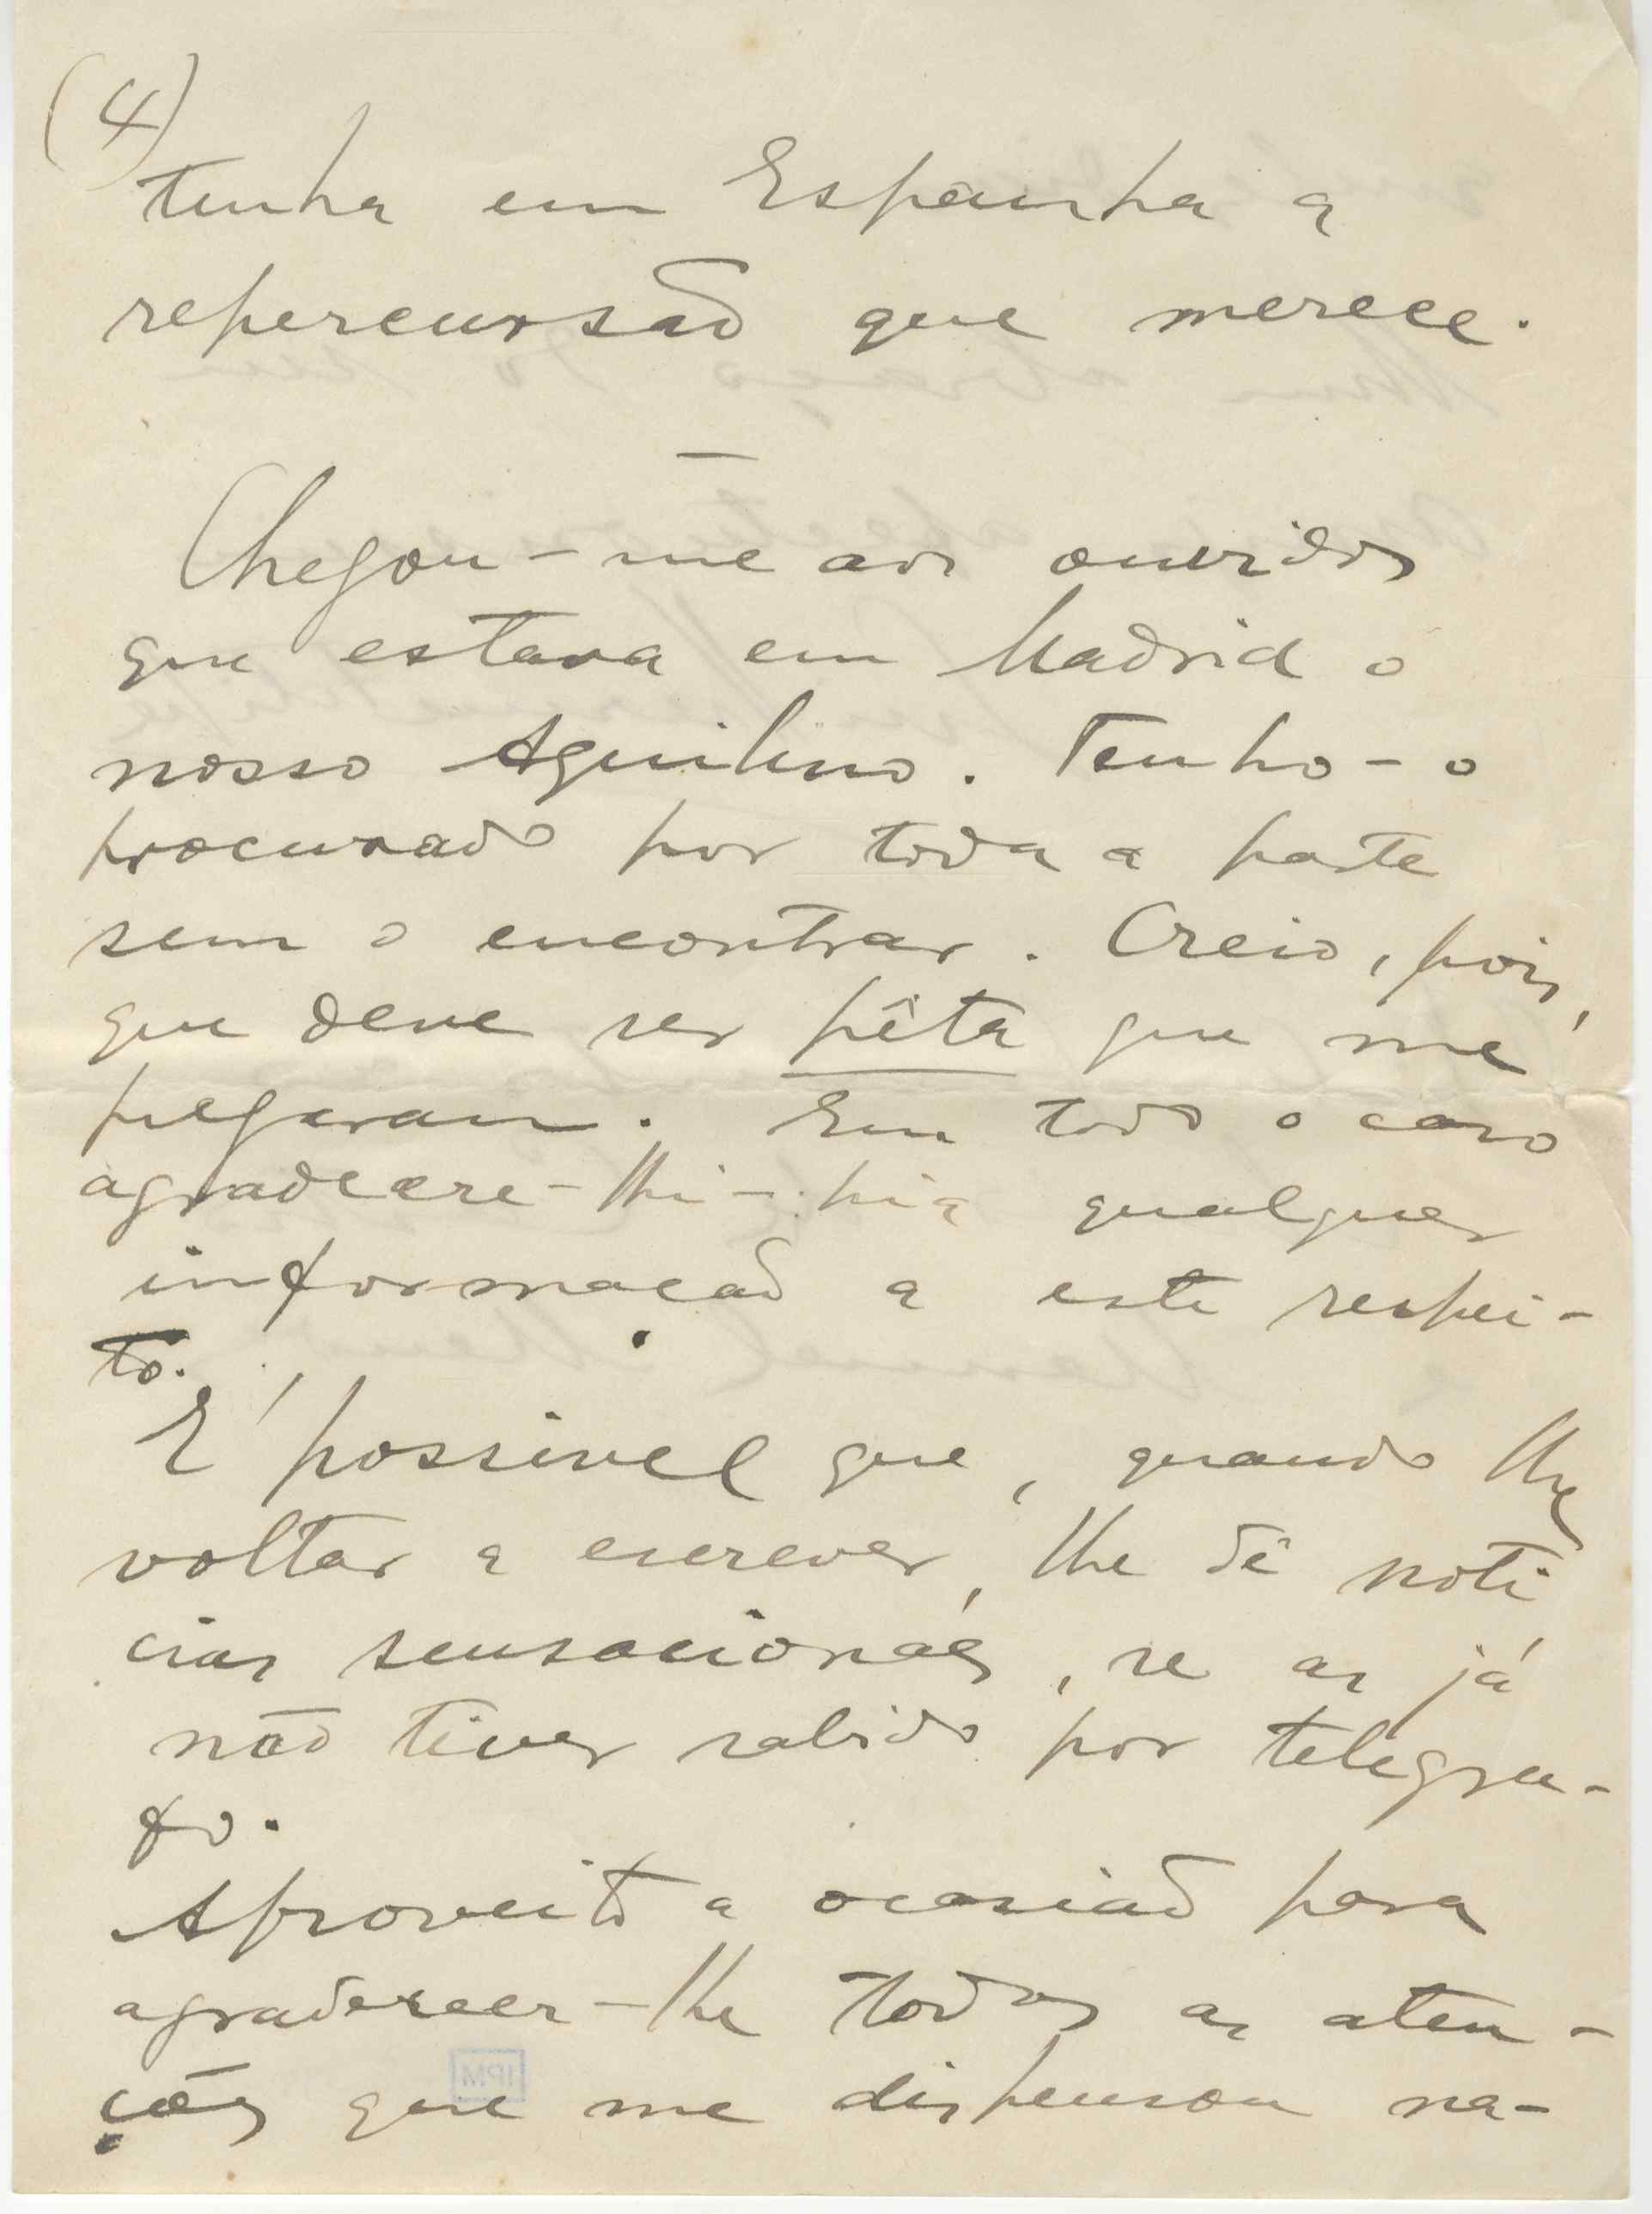 (4)
tenha em Espanha a
repercursão que merece.
Chegou-me aos ouvidos
que estava em Madrid o
nosso Aquilino. Tenho-o
procurado por toda a parte
sem o encontrar. Creio, pois,
que deve ser pêta que me
pregaram. Em todo o caso
agradecere-lhe-hia qualquer
informação a este respei-
to.
E' possivel que, quando lhe
voltar a escrever, lhe dê noti
cias sensacionaes, se as já
não tiver sabido por telegra-
fo.
Aproveito a ocasião para
agradecer-lhe todas as aten-
ções que me dispensou na-
IPM